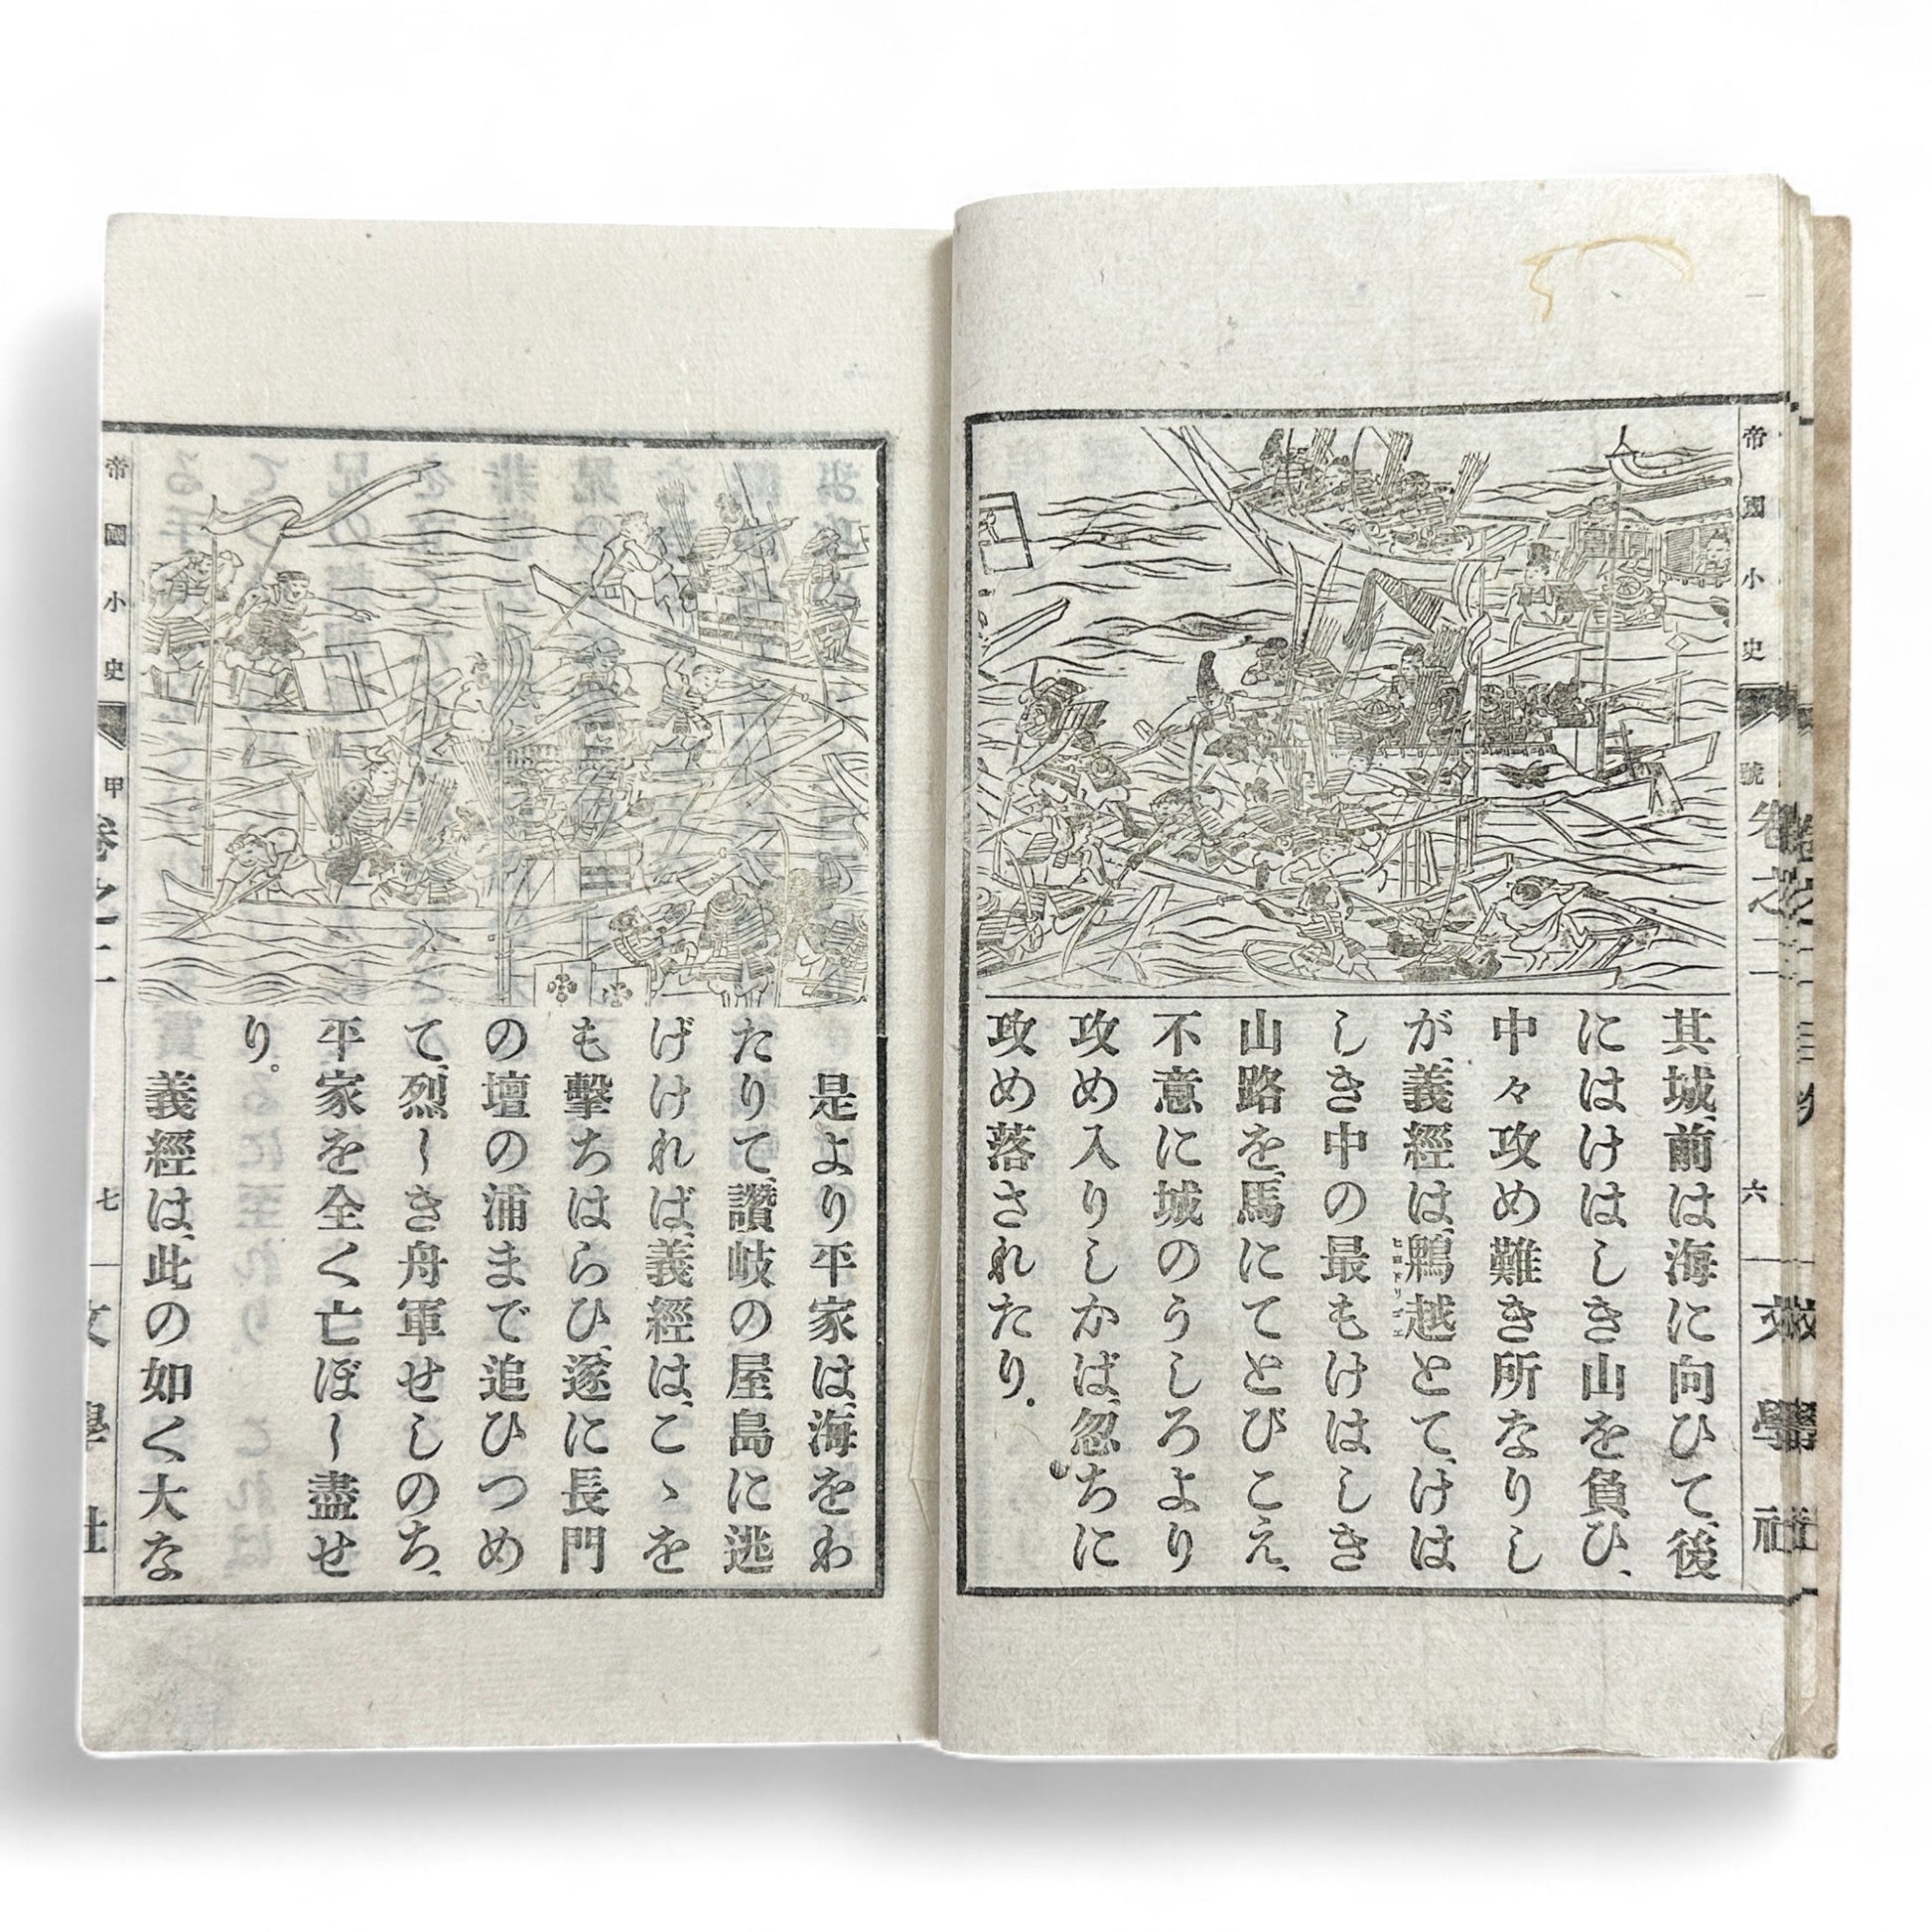 帝國小史
號
卷之二
六
文學社
其城、前は海に向ひて、後
にはけはしき山を負ひ、
中々攻め難き所なりし
が、義經は、鵯越とて、けは
しき中の最もけはしき
山路を、馬にてとびこえ、
不意に城のうしろより
攻め入りしかば、忽ちに
攻め落されたり。
是より平家は、海をわ
たりて、讚岐の屋島に逃
げければ、義經は、こゝを
も擊ちはらひ、遂に長門
の壇の浦まで追ひつめ
て、烈しき舟軍せしのち、
平家を全く亡ぼし盡せ
り。
義經は、此の如く大な
帝國小史
甲
卷之二
七
文學社